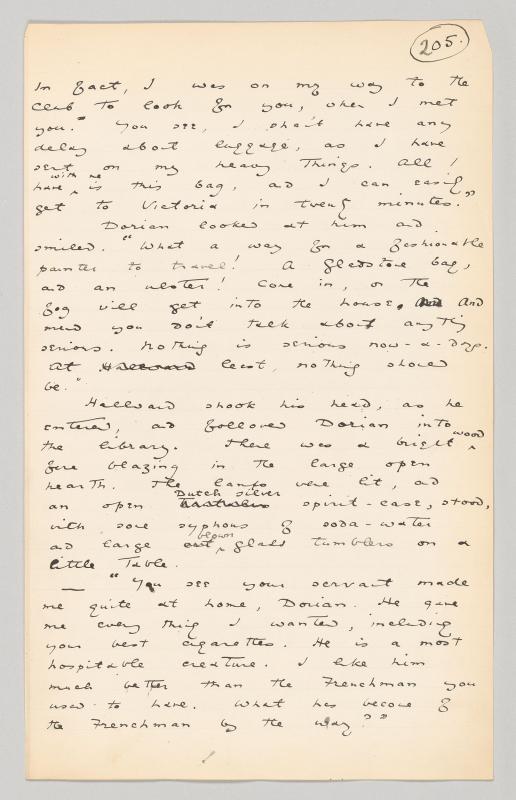 205.
In fact, I was on my way to the
Club to look for you, when I met
you." You see, I shan't have any
delay about luggage, as I have
sent on my heavy things. All I
with me
have is this bag, and I can easily
get to Victoria in twenty minutes."
Dorian looked at him and
smiled. "What a way for a fashionable
painter to travel! A Gladstone bag,
and an ulster! Come in, or the
fog will get into the house. And And
mind you don't talk about anything
serious. Nothing is serious now-a-days.
At Hallward least, nothing should
be."
Hallward shook his head, as he
entered, and followed Dorian into
wood
the library. There was a bright
fire blazing in the large open
hearth. The lamps were lit, and
Dutch silver
an open spirit-case, stood,
with some syphons of soda-water
blown
and large cut glass tumblers on a
little Table.
— "You see your servant made
me quite at home, Dorian. He gave
me every thing I wanted, including
your best cigarettes. He is a most
hospitable creature. I like him
much better than the Frenchman you
used to have. What has become of
the Frenchman by the way?"